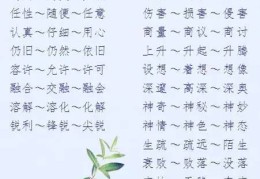 任性～随便～任意
认真～仔细～用心
仍旧～仍然～依旧
容许～允许～许可
融合～交融～融会
溶解～溶化～化解
锐利～锋锐～尖锐
伤害～损害～侵害
商量～商议～商讨
上升～升起～升腾
设想～着想～想像
深邃～高深～深奥
神奇～神秘～神妙
神情～神色～神态
生疏～疏远～陌生
衰败～败落～没落